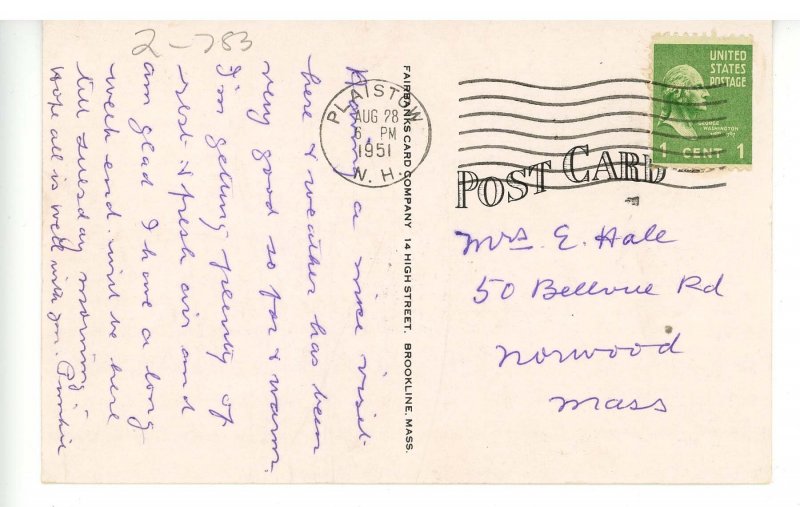 2-783
Having a nice visit
here & weather has been
very good so far & warm.
I'm getting plenty of
rest & fresh air and
am glad I have a long
week end. will be here
till Tuesday morning
Hope all is well with you.
FAIRBANKS CARD COMPANY 14 HIGH STREET. BROOKLINE, MASS.
PLAISTOW
AUG 28
6 PM
1951
N. H.
UNITED
STATES
POSTAGE
GEORGE
WASHINGTON
1 CENT 1
POST CARD
Mrs E. Hale
50 Bellvue Rd
Norwood
Mass